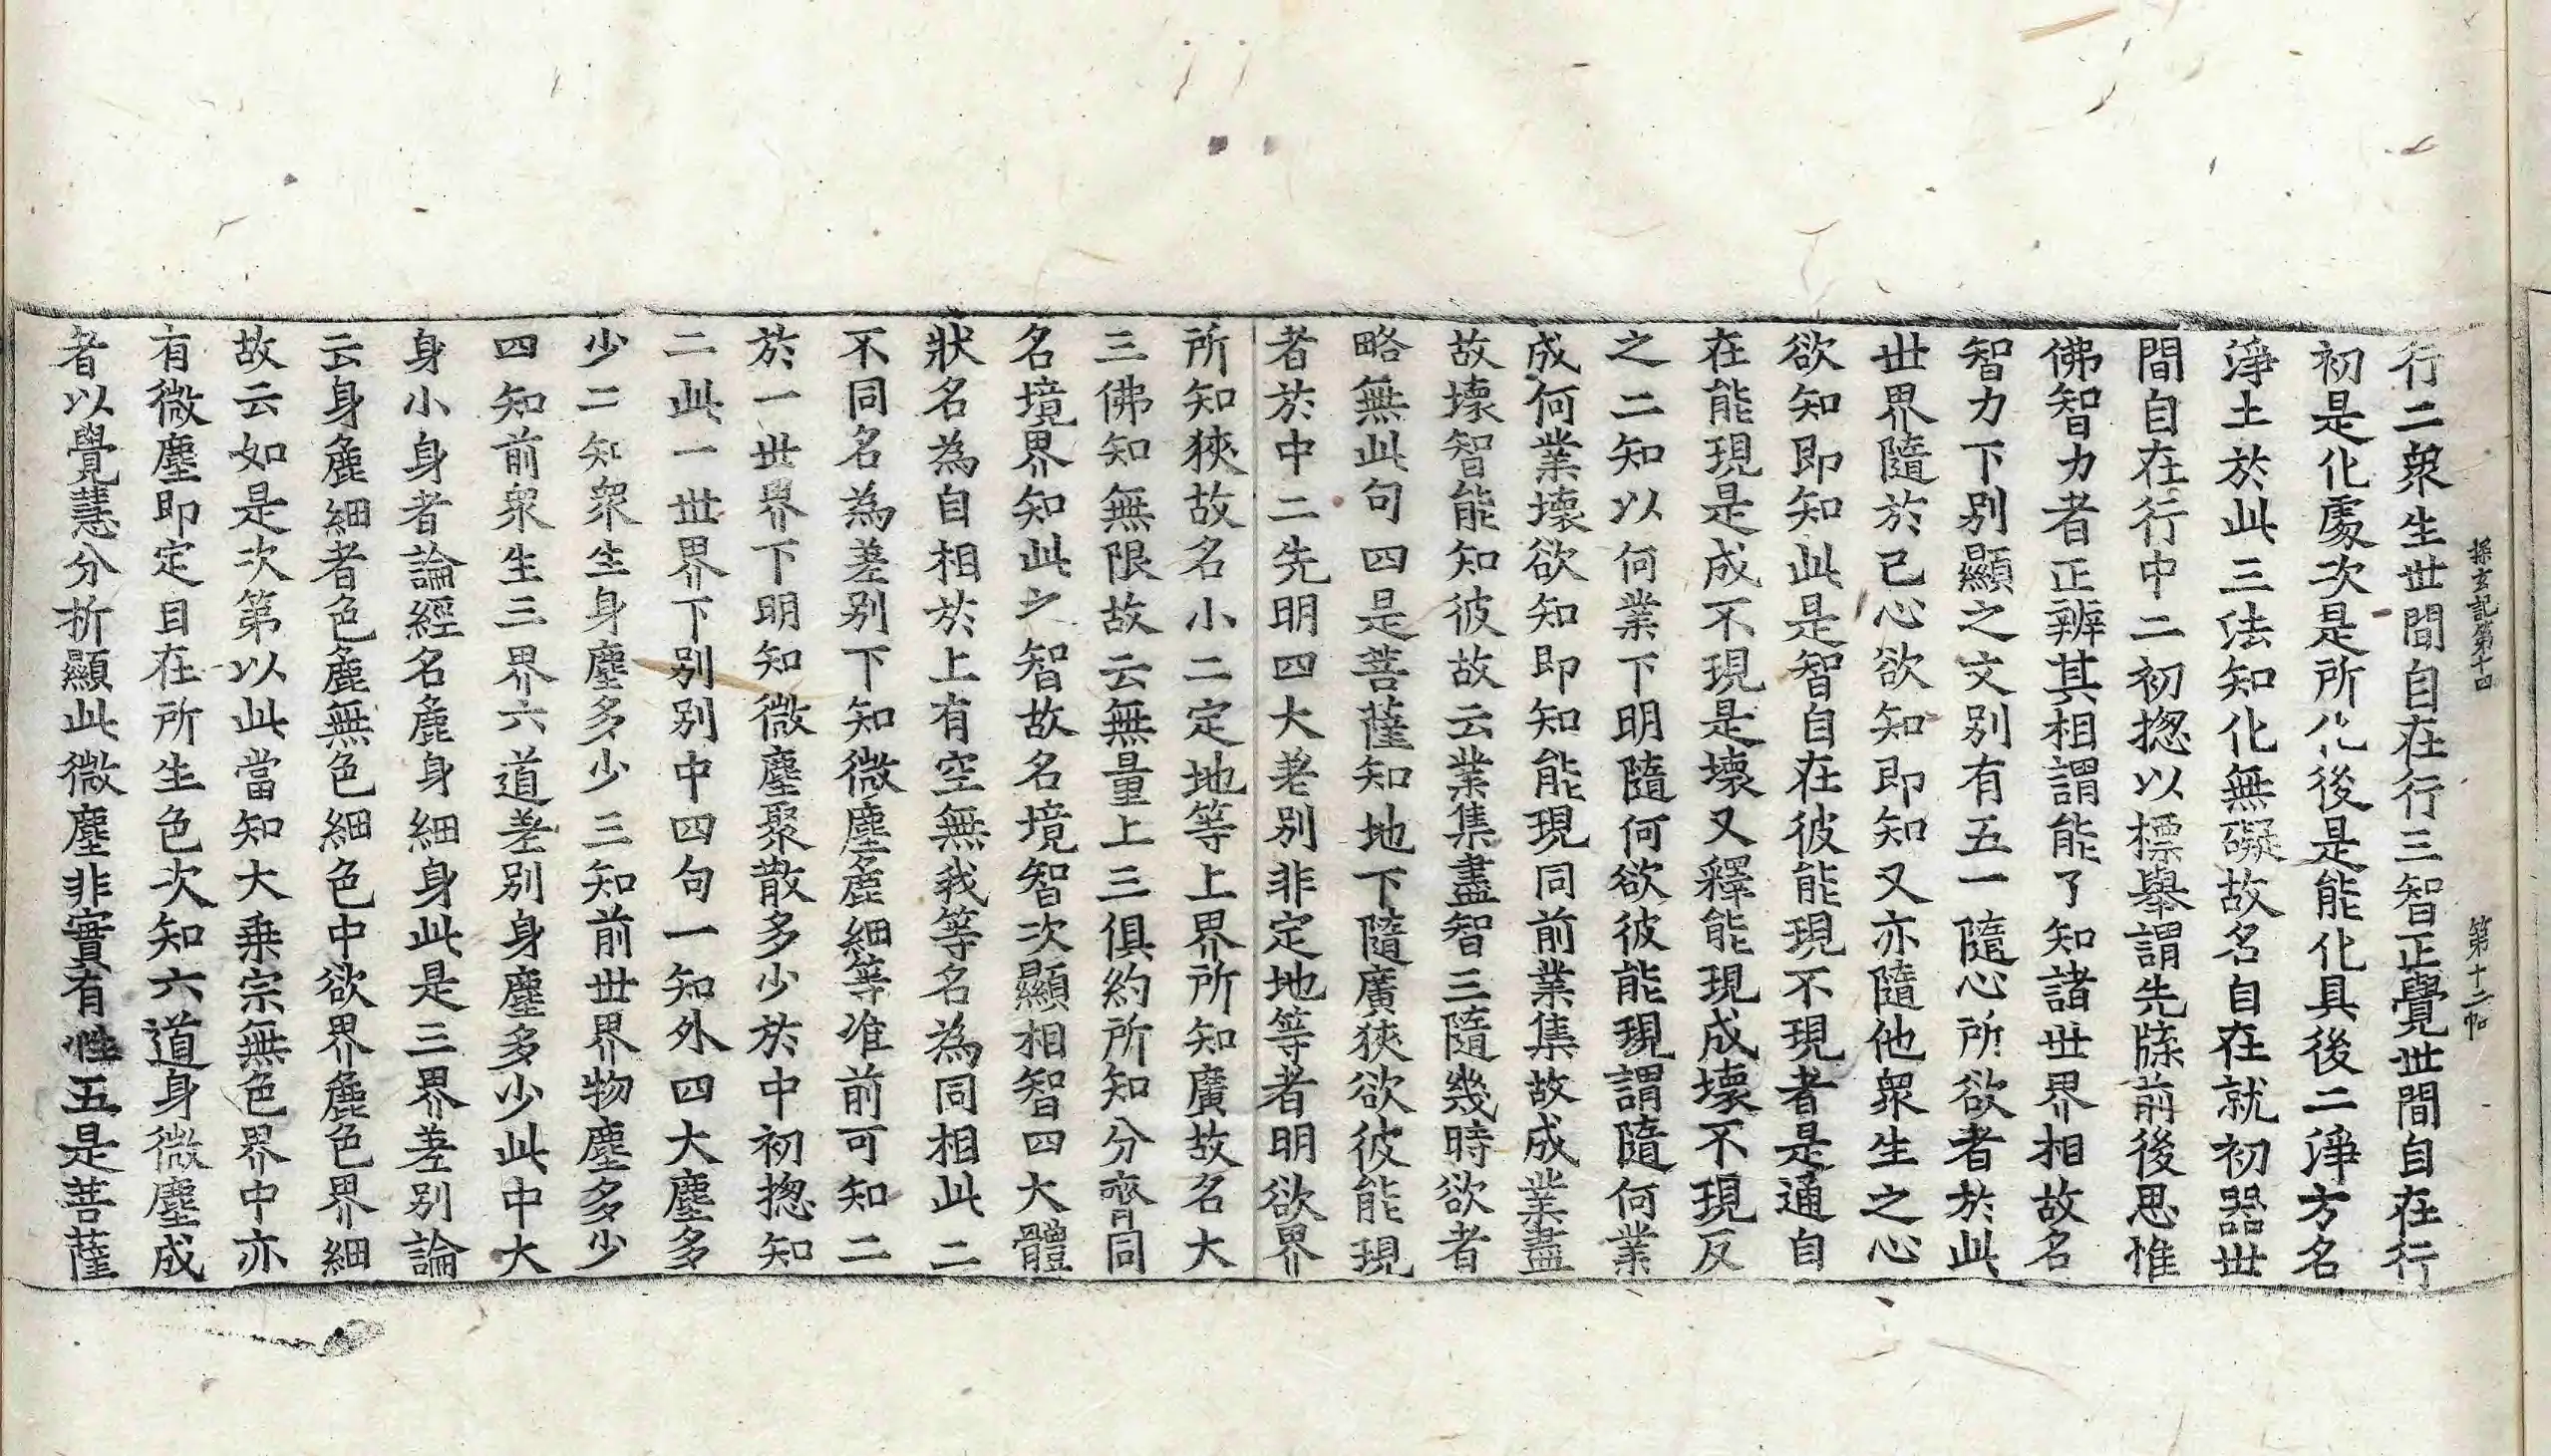 探玄記第十四 第十二帖
行二衆生世間自在行三智正覺世間自在行
初是化處次是所化後是能化具後二淨方名
淨土於此三法知化無礙故名自在就初器世
間自在行中二初揔以標舉謂先牒前後思惟
佛智力者正辨其相謂能了知諸世界相故名
智力下別顯之文別有五一隨心所欲者於此
世界隨於己心欲知即知又亦隨他衆生之心
欲知即知此是智自在彼能現不現者是通自
在能現是成不現是壞又釋能現成壞不現反
之二知以何業下明隨何欲彼能現謂隨何業
成何業壞欲知即知能現同前業集故成業盡
故壞智能知彼故云業集盡智三隨幾時欲者
略無此句四是菩薩知地下隨廣狹欲彼能現
者於中二先明四大差別非定地等者明欲界
所知狹故名小二定地等上界所知廣故名大
三佛知無限故云無量上三俱約所知分齊同
名境界知此之智故名境智次顯相智四大體
狀名為自相於上有空無我等名為同相此二
不同名為差別下知微塵麁細等准前可知二
於一世界下明知微塵聚散多少於中初揔知
二此一世界下別別中四句一知外四大塵多
少二知衆生身塵多少三知前世界物塵多少
四知前衆生三界六道差別身塵多少此中大
身小身者論經名麁身細身此是三界差別論
云身麁細者色麁無色細色中欲界麁色界細
故云如是次第以此當知大乗宗無色界中亦
有微塵即定自在所生色次知六道身微塵成
者以覺慧分折顯此微塵非實有性五是菩薩